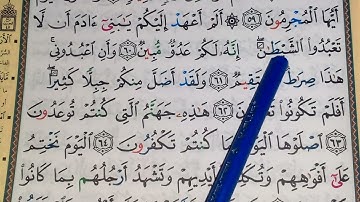 أَيُّهَا ٱلْمُجْرِمُونَ ٥٩ ۞ أَلَمْ أَعْهَدْ إِلَيْكُمْ يَٰبَنِىٓ ءَادَمَ أَن لَّا
تَعْبُدُوا۟ ٱلشَّيْطَٰنَ ۖ إِنَّهُۥ لَكُمْ عَدُوٌّ مُّبِينٌ ٦٠ وَأَنِ ٱعْبُدُونِى ۚ
هَٰذَا صِرَٰطٌ مُّسْتَقِيمٌ ٦١ وَلَقَدْ أَضَلَّ مِنكُمْ جِبِلًّا كَثِيرًا ۖ
أَفَلَمْ تَكُونُوا۟ هَٰذِهِۦ جَهَنَّمُ ٱلَّتِى كُنتُمْ تُوعَدُونَ
٦٣ ٱصْلَوْهَا ٱلْيَوْمَ كُنتُمْ تَكْفُرُونَ ٦٤ ٱلْيَوْمَ نَخْتِمُ
عَلَىٰٓ أَفْوَٰهِهِمْ وَتُكَلِّمُنَآ أَيْدِيهِمْ وَتَشْهَدُ أَرْجُلُهُم بِمَا كَانُوا۟